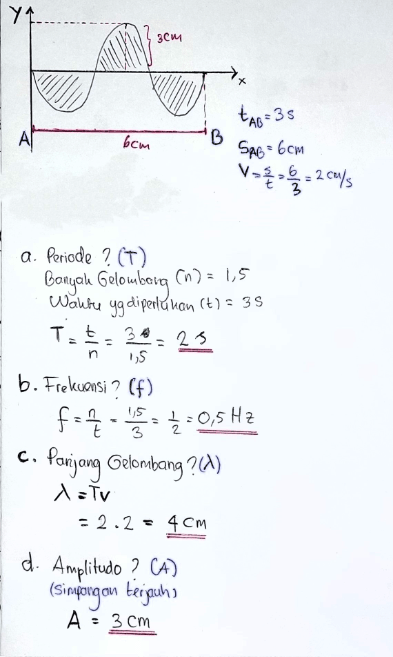 Y
3cm
x
A
6cm
B
t_AB = 3 s
S_AB = 6 cm
V = s/t = 6/3 = 2 cm/s
a. Periode ? (T)
Banyak Gelombang (n) = 1,5
Waktu yg diperlukan (t) = 3 S
T = t/n = 3/1,5 = 2 s
b. Frekuensi ? (f)
f = n/t = 1,5/3 = 1/2 = 0,5 Hz
c. Panjang Gelombang ? (λ)
λ = Tv
= 2 . 2 = 4 cm
d. Amplitudo ? (A)
(Simpangan terjauh)
A = 3 cm